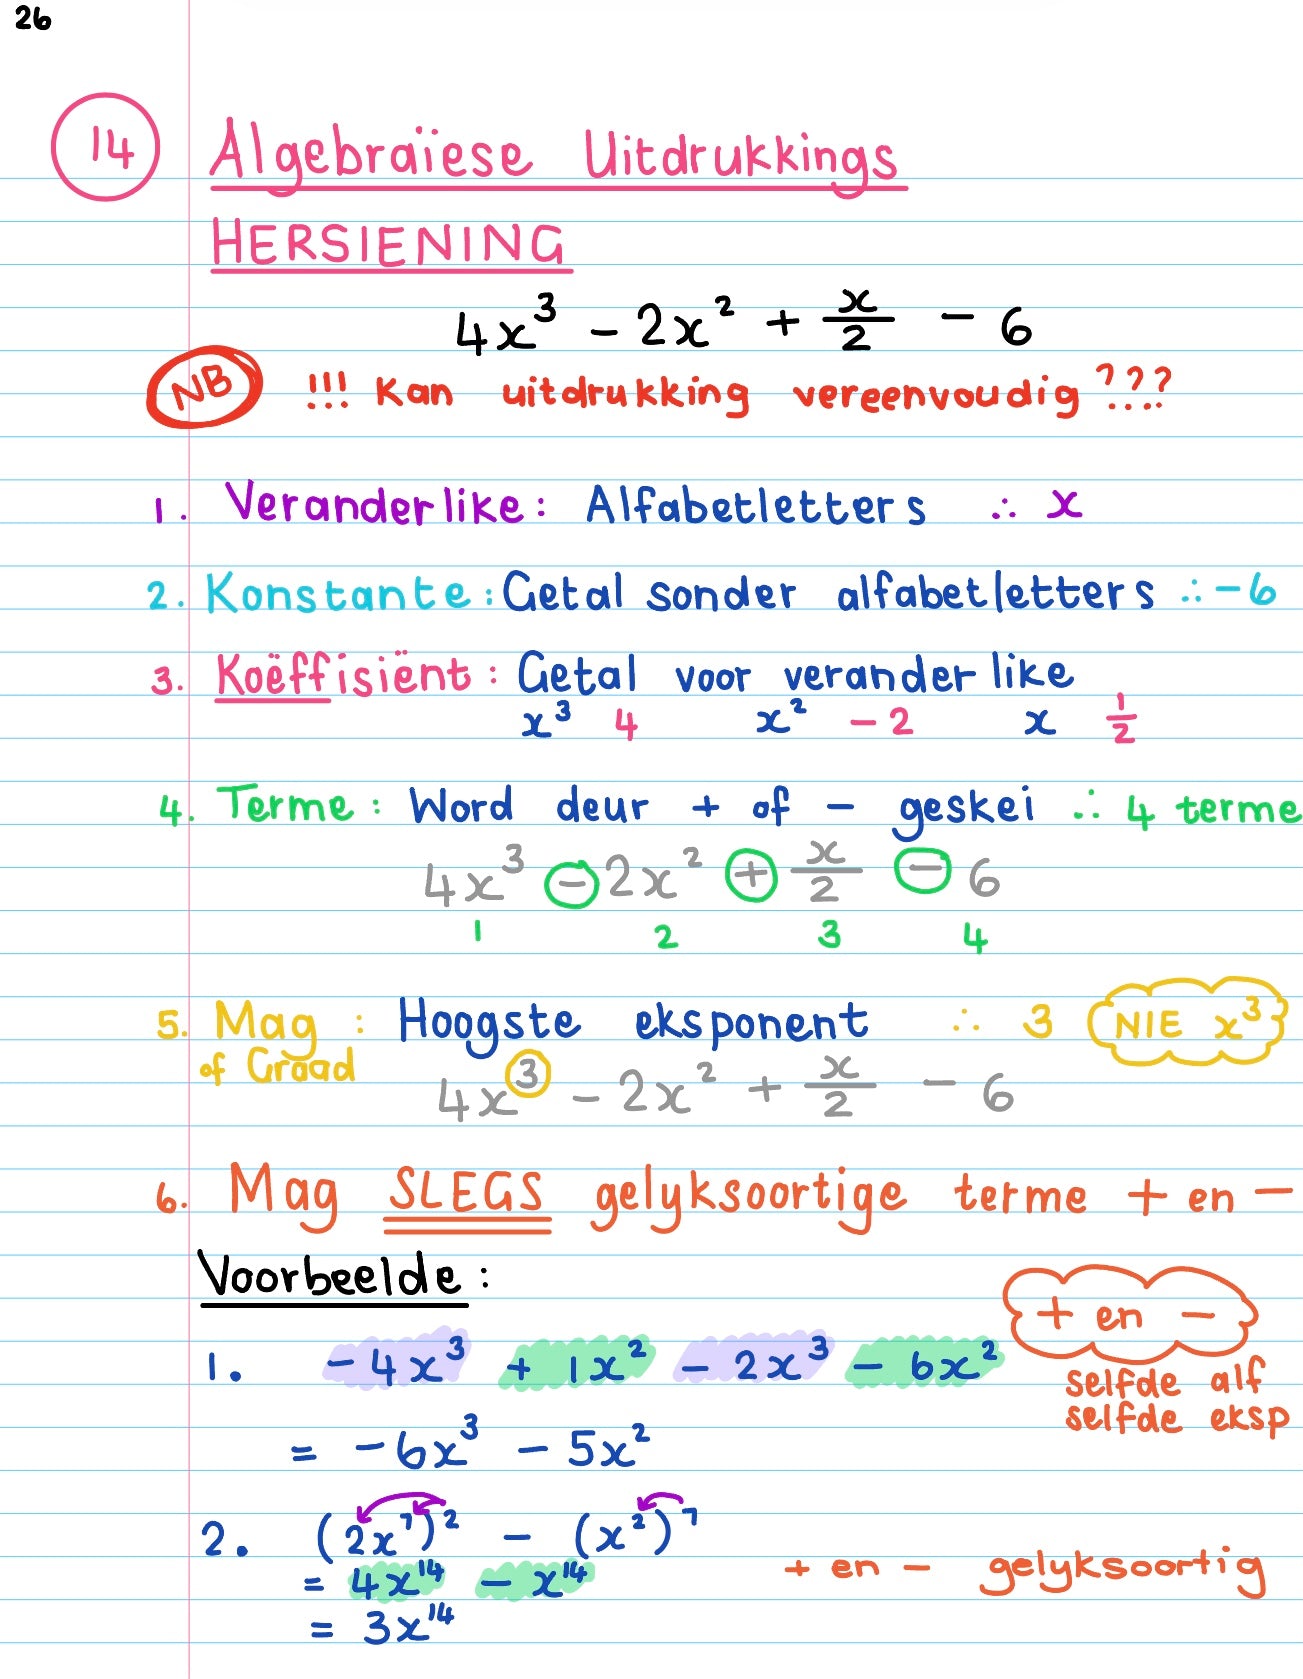 26
14 Algebraïese Uitdrukkings
HERSIENING
4x³ - 2x² + x/2 - 6
NB !!! Kan uitdrukking vereenvoudig ???
1. Veranderlike: Alfabetletters ∴ x
2. Konstante: Getal sonder alfabetletters ∴ -6
3. Koëffisiënt: Getal voor veranderlike
x³ 4 x² -2 x 1/2
4. Terme: Word deur + of - geskei ∴ 4 terme
4x³ - 2x² + x/2 - 6
1 2 3 4
5. Mag : Hoogste eksponent ∴ 3 NIE x³
of Graad
4x³ - 2x² + x/2 - 6
6. Mag SLEGS gelyksoortige terme + en -
Voorbeelde:
+ en -
1. -4x³ + 1x² - 2x³ - 6x²
selfde alf
selfde eksp
= -6x³ - 5x²
2. (2x⁷)² - (x²)⁷
= 4x¹⁴ - x¹⁴ + en - gelyksoortig
= 3x¹⁴